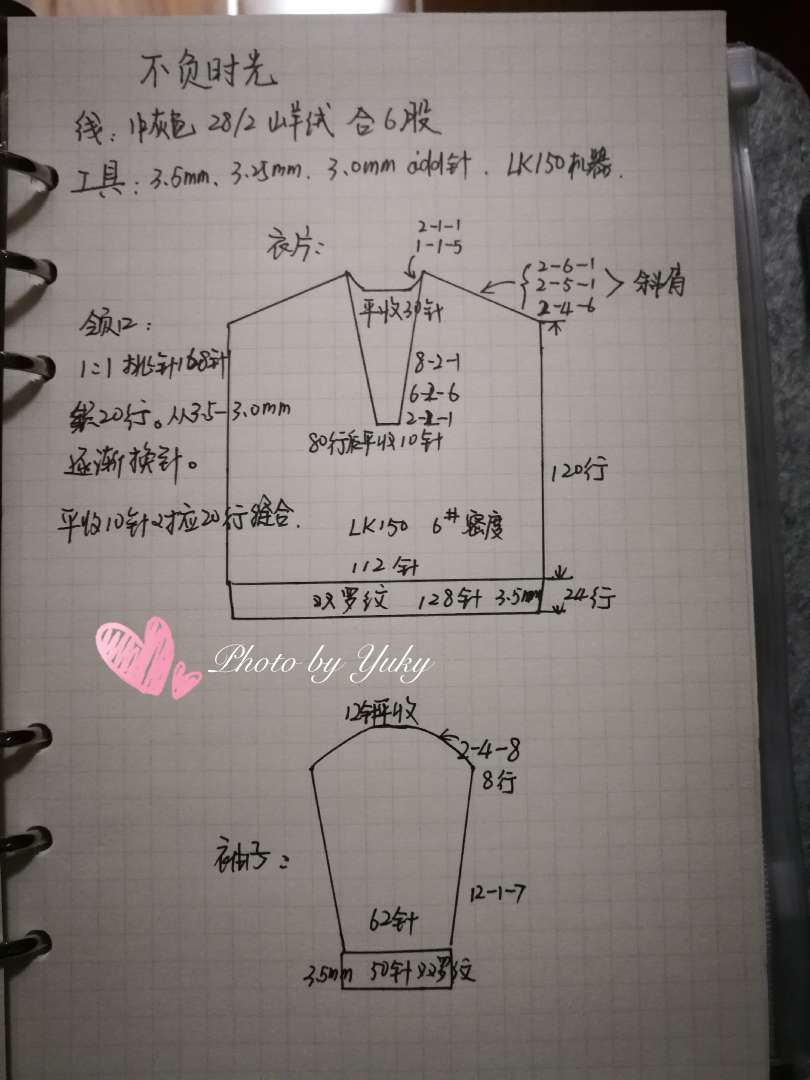 不负时光
线：中灰色 28/2 山羊绒 合6股
工具：3.5mm、3.25mm、3.0mm addi针、LK150机器.
衣片：
2-1-1
1-1-5
2-6-1
2-5-1
2-4-6
斜肩
平收30针
领口：
1:1 挑针168针
织20行。从3.5-3.0mm
逐渐换针。
平收10针对应20行缝合.
8-2-1
6-2-6
2-2-1
80行后平收10针
120行
LK150 6# 密度
112针
双罗纹 128针 3.5mm
24行
Photo by Yuky
12针平收
2-4-8
8行
衣袖子：
12-1-7
62针
3.5mm 50针 双罗纹